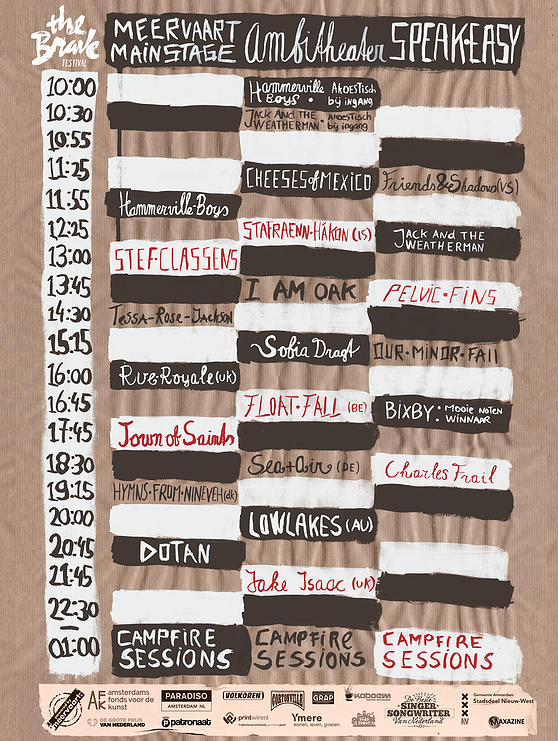 the
Brave
FESTIVAL
MEERVAART
MAINSTAGE
Ambitheater
SPEAK-EASY
10:00
Hammerville
Boys • Akoestisch
bij ingang
10:30
JACK AND THE
WEATHERMAN • Akoestisch
bij ingang
10:55
11:25
CHEESES of MEXICO
Friends & Shadows (VS)
11:55
Hammerville-Boys
12:25
STAFRAENN-HÁKON (IS)
JACK AND THE
WEATHERMAN
13:00
STEF CLASSENS
13:45
I AM OAK
PELVIC • FINS
14:30
Tessa-Rose-Jackson
15:15
Sofia Dragt
OUR • MINOR • FALL
16:00
Rue-Royale (UK)
16:45
FLOAT • FALL (BE)
BIXBY: Mooie Noten
WINNAAR
17:45
Town of Saints
18:30
Sea + Air (DE)
Charles Frail
19:15
HYMNS • FROM • NINEVEH (dk)
20:00
LOWLAKES (AU)
20:45
DOTAN
21:45
Jake Isaac (UK)
22:30
01:00
CAMPFIRE
SESSIONS
CAMPFIRE
SESSIONS
CAMPFIRE
SESSIONS
AFK amsterdams
fonds voor de
kunst
PARADISO
AMSTERDAM NL
VOLKOREN
GURTONVILLE
GRAP
kaboom
De Beste
SINGER
SONGWRITER
Van Nederland
Gemeente Amsterdam
Stadsdeel Nieuw-West
DE GROTE PRIJS
VAN NEDERLAND
patronaat
printwirenl
Ymere
wonen, leven, groeien
MAXAZINE